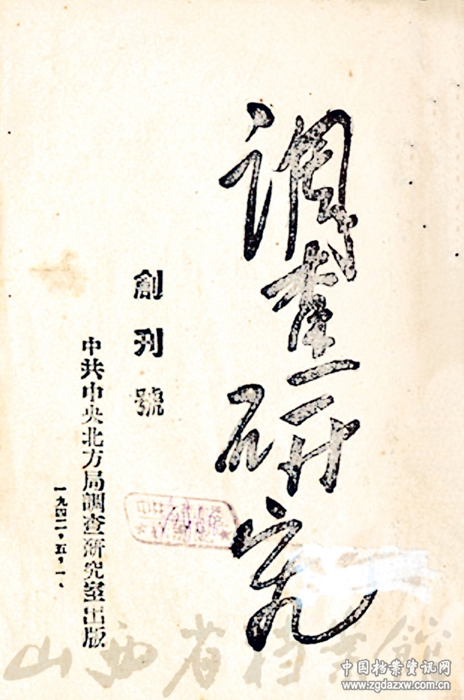 調查研究
創刊號
中共中央北方局調查研究室出版
一九四二·五·一、
山西省档案館
中国档案资讯网
www.zgdazxw.com.cn